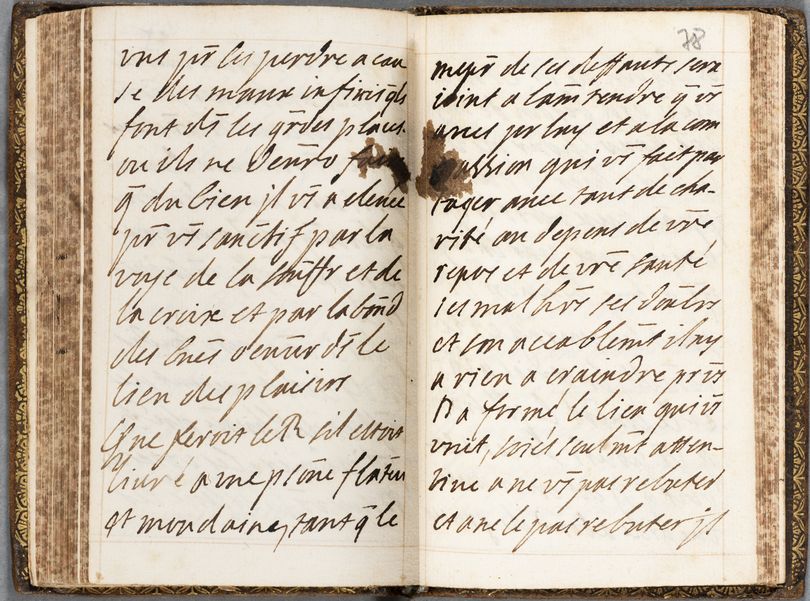 vns pr les perdre a cau
se des maux infinis qls
font ds les grdes places
ou ils ne devrō faire
q du bien jl vs a elevée
pr vs sanctif par la
voye de la souffr et de
la croix et par labond
des bnes oeuvr ds le
lien des plaisirs
Que feroit le R sil estoit
livré a une psōne flateu
et mondaine, tant q le
78
mepr de ses deffauts sera
joint a lamr tendre q vs
avés pr luy et a la com
passion qui vs fait par
tager avec tant de cha-
rité au depens de vre
repos et de vre santé
ses malhrs ses doulrs
et son accablemt il ny
a rien a craindre puis
D a formé le lien qui vs
unit, soiés seulmt atten-
tive a ne vs pas rebuter
et a ne le pas rebuter jl